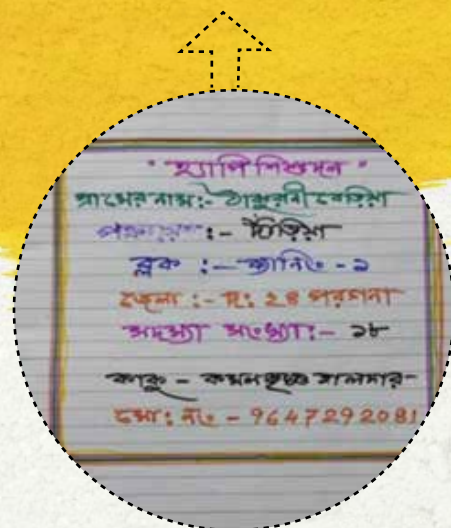 " হ্যাপি শিশুমন "
গ্রামের নাম:- ঠাকুরানী বেড়িয়া
পঞ্চায়েত :- দাঁড়িয়া
ব্লক :- ক্যানিং - ১
জেলা :- দ: ২৪ পরগনা
সদস্যা সংখ্যা:- ১৮
কাকু - কমলকৃষ্ণ হালদার-
মো: নং - 9647292081